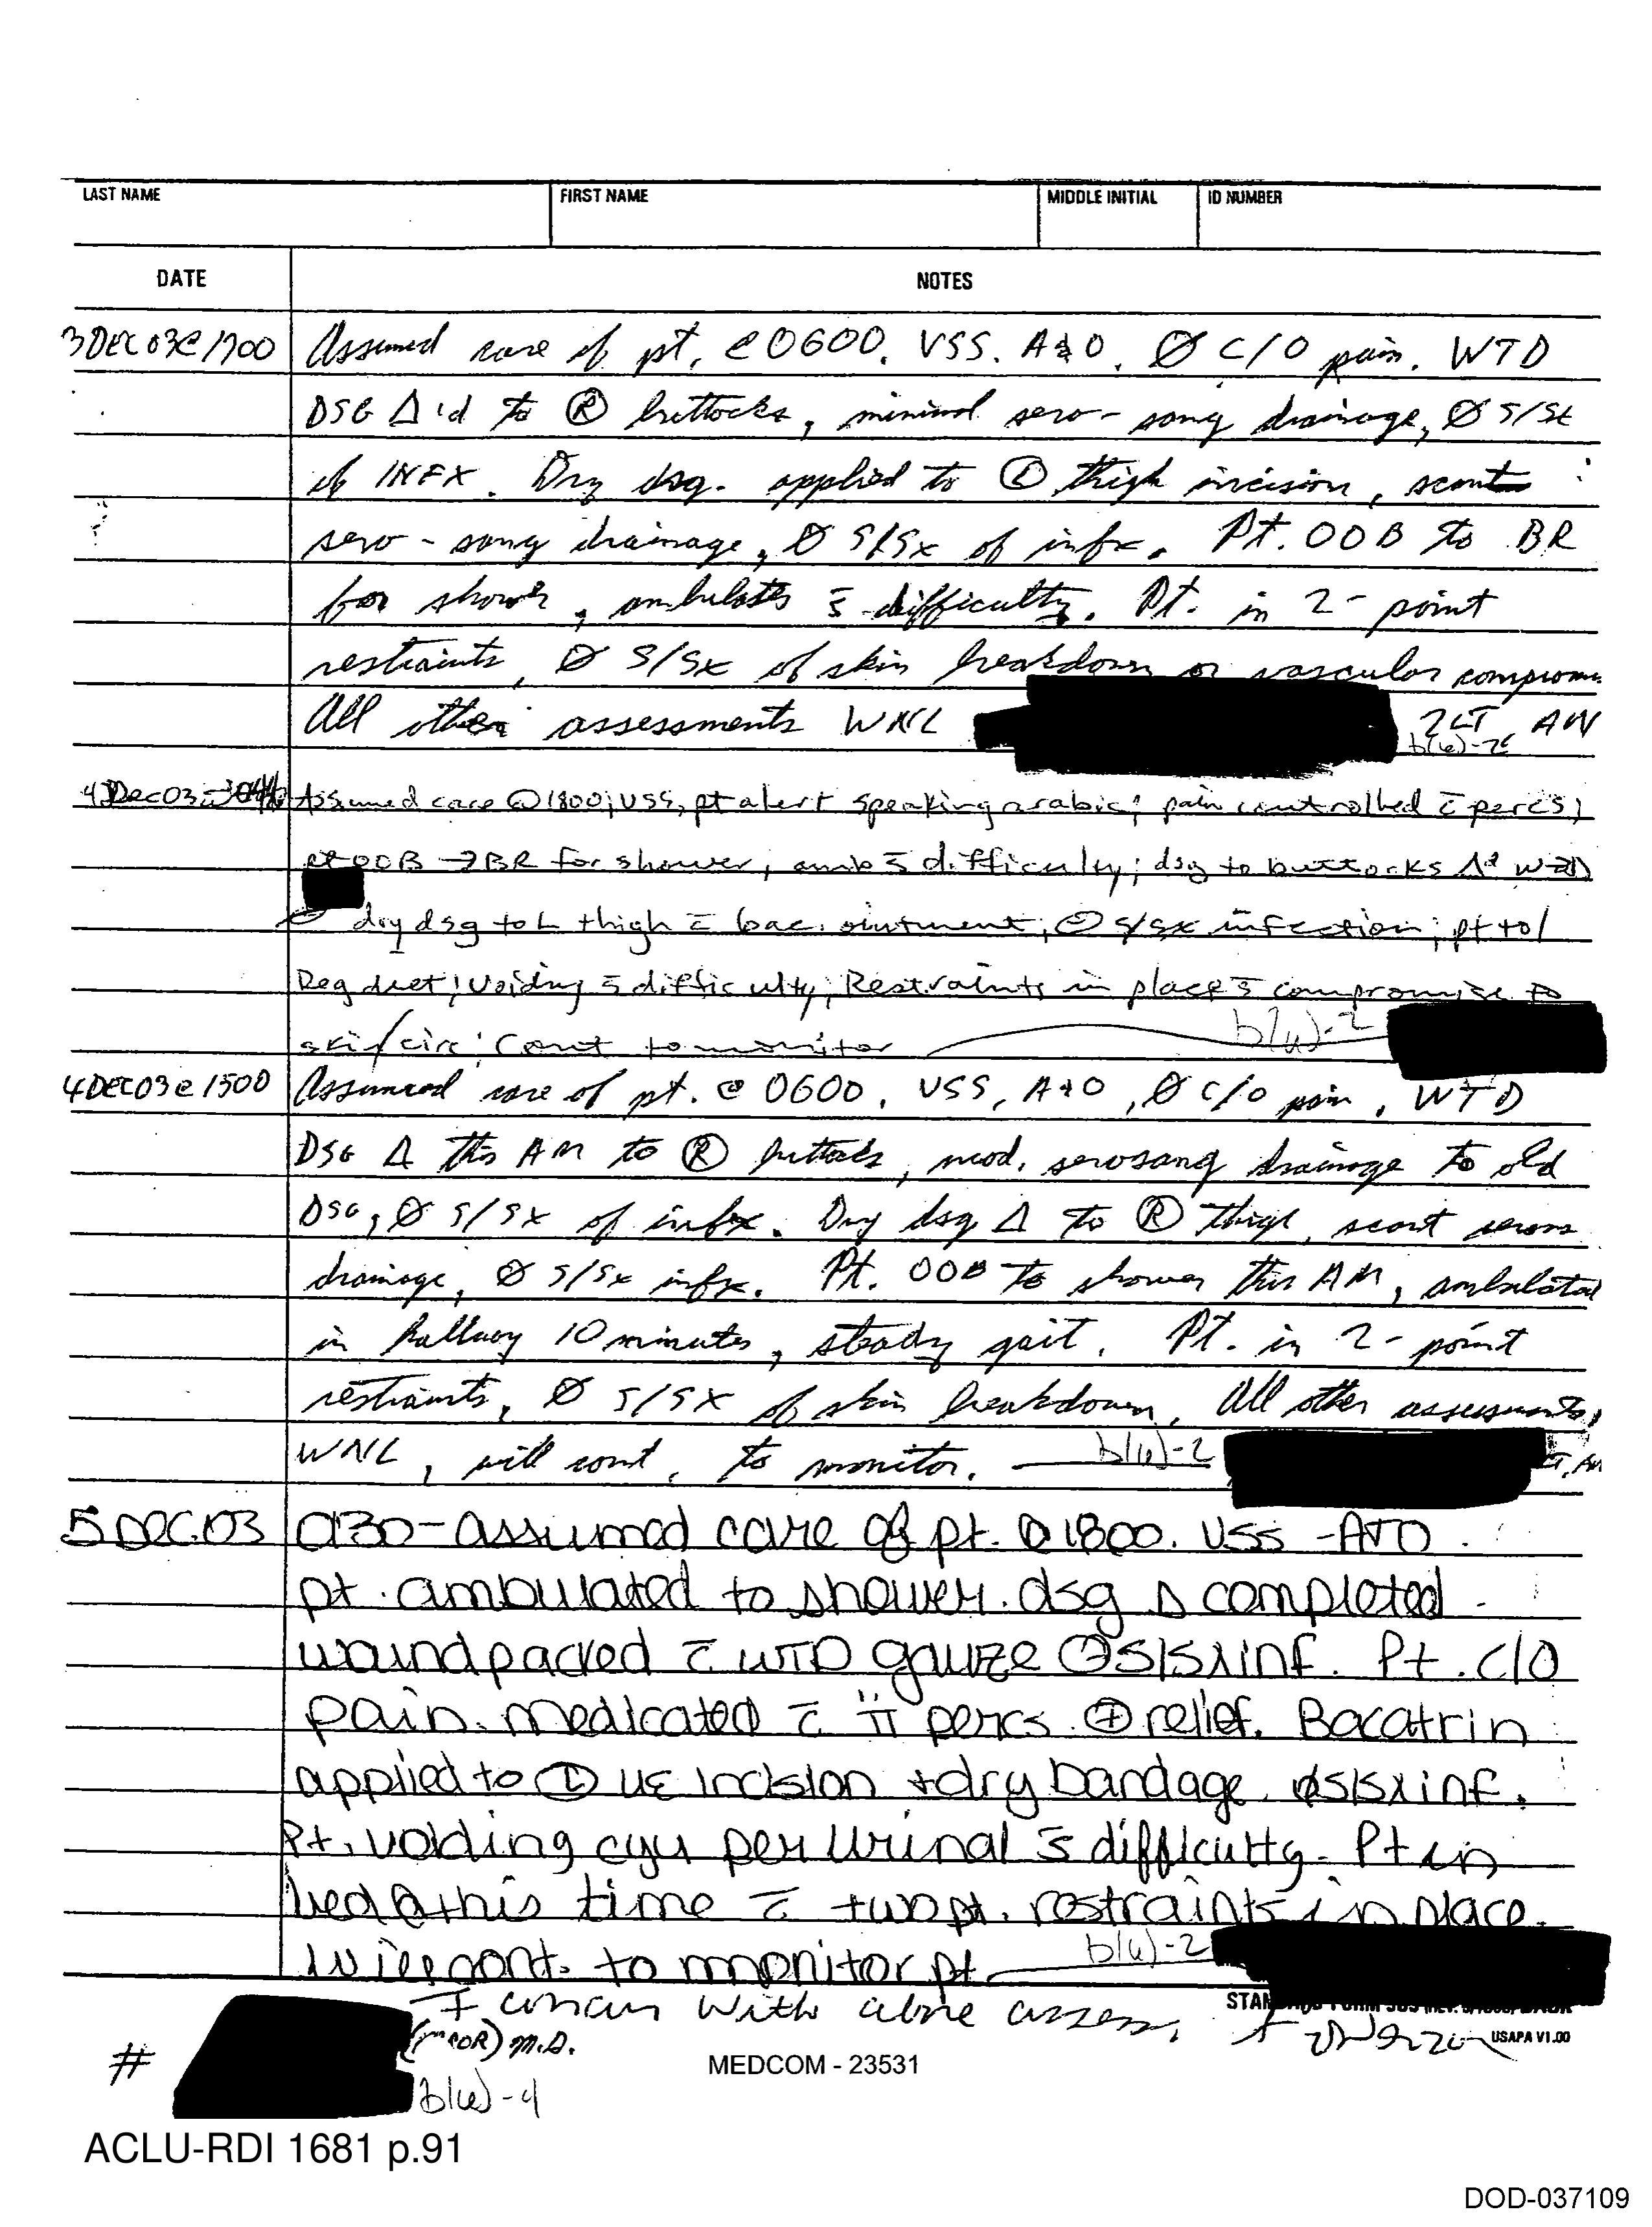 LAST NAME FIRST NAME MIDDLE INITIAL ID NUMBER
DATE NOTES
3 DEC 03 @ 1700 Assumed care of pt. @ 0600. VSS. A&O. Ø C/O pain. WTD
DSG Δ'd to Ⓡ buttocks, minimal sero-sang drainage, Ø S/Sx
of INFX. Dry dsg. applied to Ⓛ thigh incision, scant
sero-sang drainage, Ø S/Sx of infx. Pt. OOB to BR
for shower, ambulates s̄ difficulty. Pt. in 2-point
restraints, Ø S/Sx of skin breakdown or vascular compromi
All other assessments WNL 2LT, AN
b(6)-2
4Dec03 Assumed care @ 1800; VSS, pt alert speaking arabic; pain controlled c̄ percs;
pt OOB → BR for shower, amb s̄ difficulty; dsg to buttocks Δ'd WTD
dry dsg to L thigh c̄ bac. ointment; ⊖ s/sx infection; pt tol
Reg diet; voiding s̄ difficulty; Restraints in place s̄ compromise to
skin/circ; Cont to monitor b(6)-2
4 DEC 03 @ 1500 Assumed care of pt. @ 0600. VSS, A+O, Ø C/O pain, WTD
DSG Δ this AM to Ⓡ buttocks, mod. serosang drainage to old
DSG, Ø S/Sx of infx. Dry dsg Δ to Ⓡ thigh, scant serous
drainage, Ø S/Sx infx. Pt. OOB to shower this AM, ambulated
in hallway 10 minutes, steady gait. Pt. in 2-point
restraints, Ø S/Sx of skin breakdown. All other assessments,
WNL, will cont. to monitor. b(6)-2 LT, AN
5 DEC 03 0130-assumed care of pt. @ 1800. VSS -A+O.
pt. ambulated to shower. dsg Δ completed
wound packed c̄ WTD gauze s/sx inf. Pt. c/o
pain. medicated c̄ ii percs ⊕ relief. Bacatrin
applied to Ⓛ incision + dry bandage. Ø s/sx inf.
Pt. voiding cyu per urinal s̄ difficulty. Pt in
bed @ this time c̄ two pt. restraints in place.
Will cont. to monitor pt. b(6)-2
I concur with above assess.
M.D.
# b(6)-4
USAPA V1.00
MEDCOM - 23531
ACLU-RDI 1681 p.91
DOD-037109